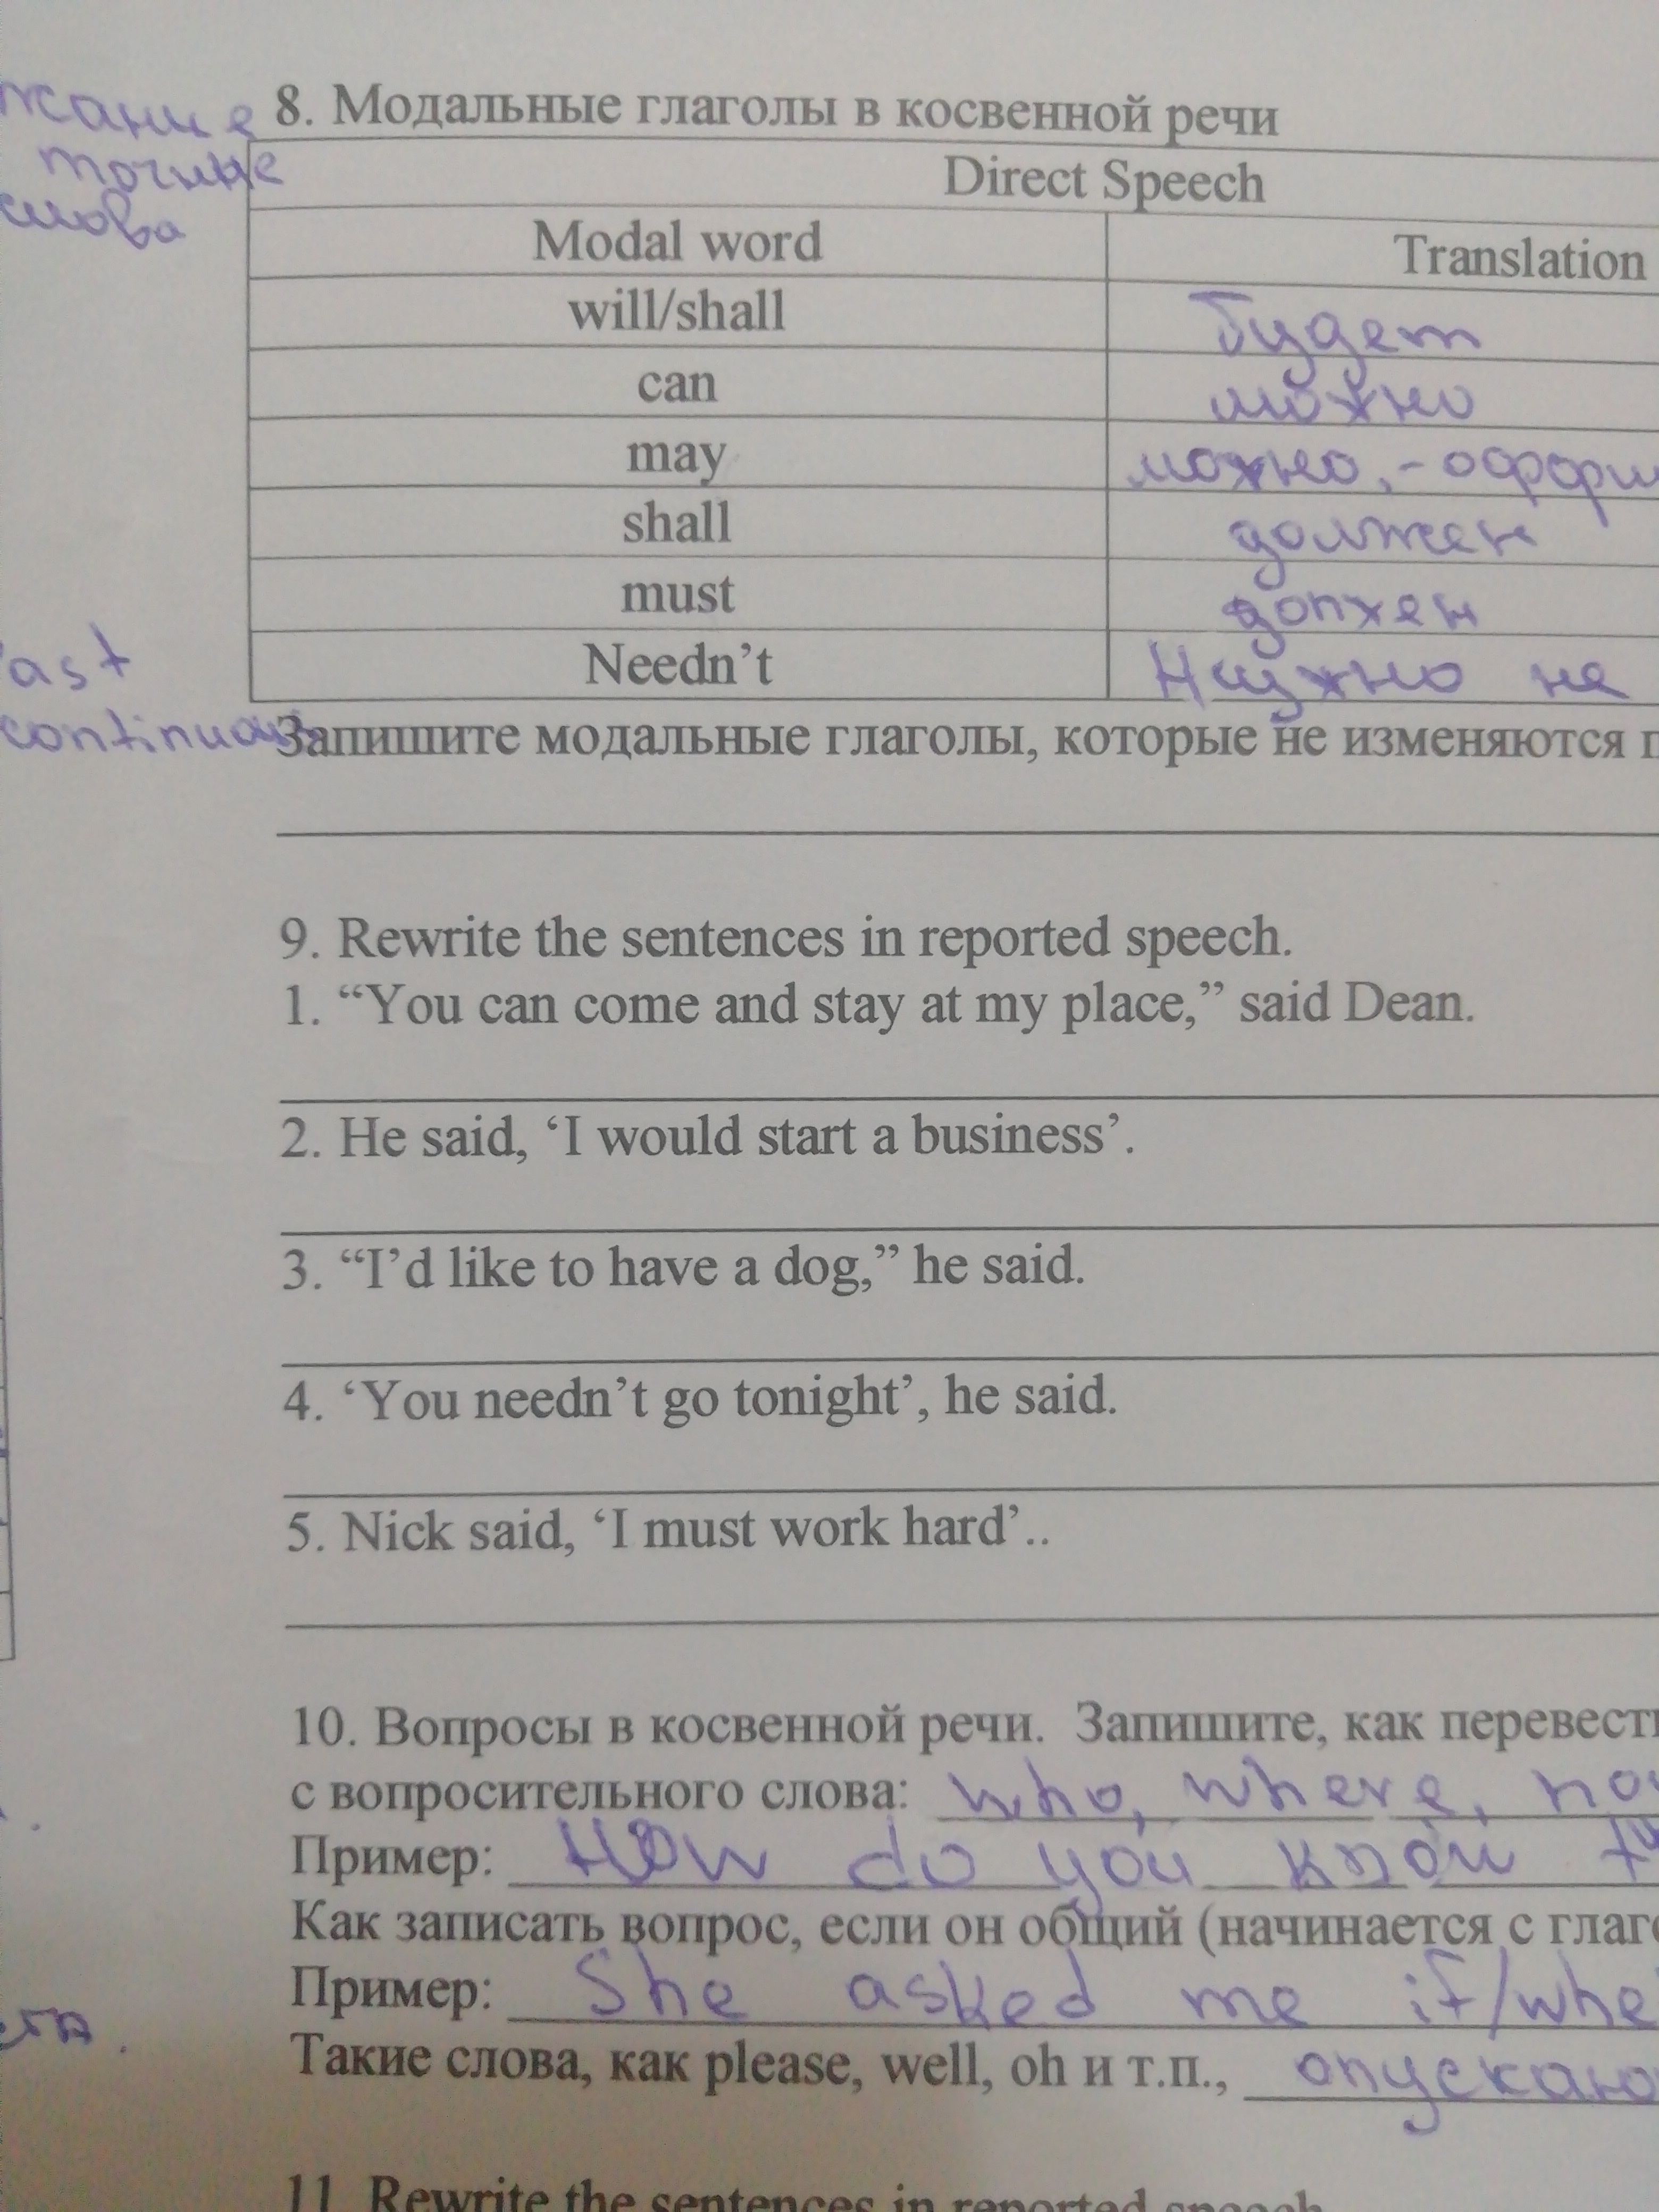 жание 8. Модальные глаголы в косвенной речи
точные Direct Speech
слова
Modal word Translation
will/shall будет
can можно
may можно, -
shall должен
must должен
Needn’t Нужно не
continuous Запишите модальные глаголы, которые не изменяются
9. Rewrite the sentences in reported speech.
1. “You can come and stay at my place,” said Dean.
2. He said, ‘I would start a business’.
3. “I’d like to have a dog,” he said.
4. ‘You needn’t go tonight’, he said.
5. Nick said, ‘I must work hard’..
10. Вопросы в косвенной речи. Запишите, как перевести
с вопросительного слова: who, where,
Пример: How do you know
Как записать вопрос, если он общий (начинается с
Пример: She asked me if/whe
Такие слова, как please, well, oh и т.п., опускаю
11. Rewrite the sentences in reported speech.